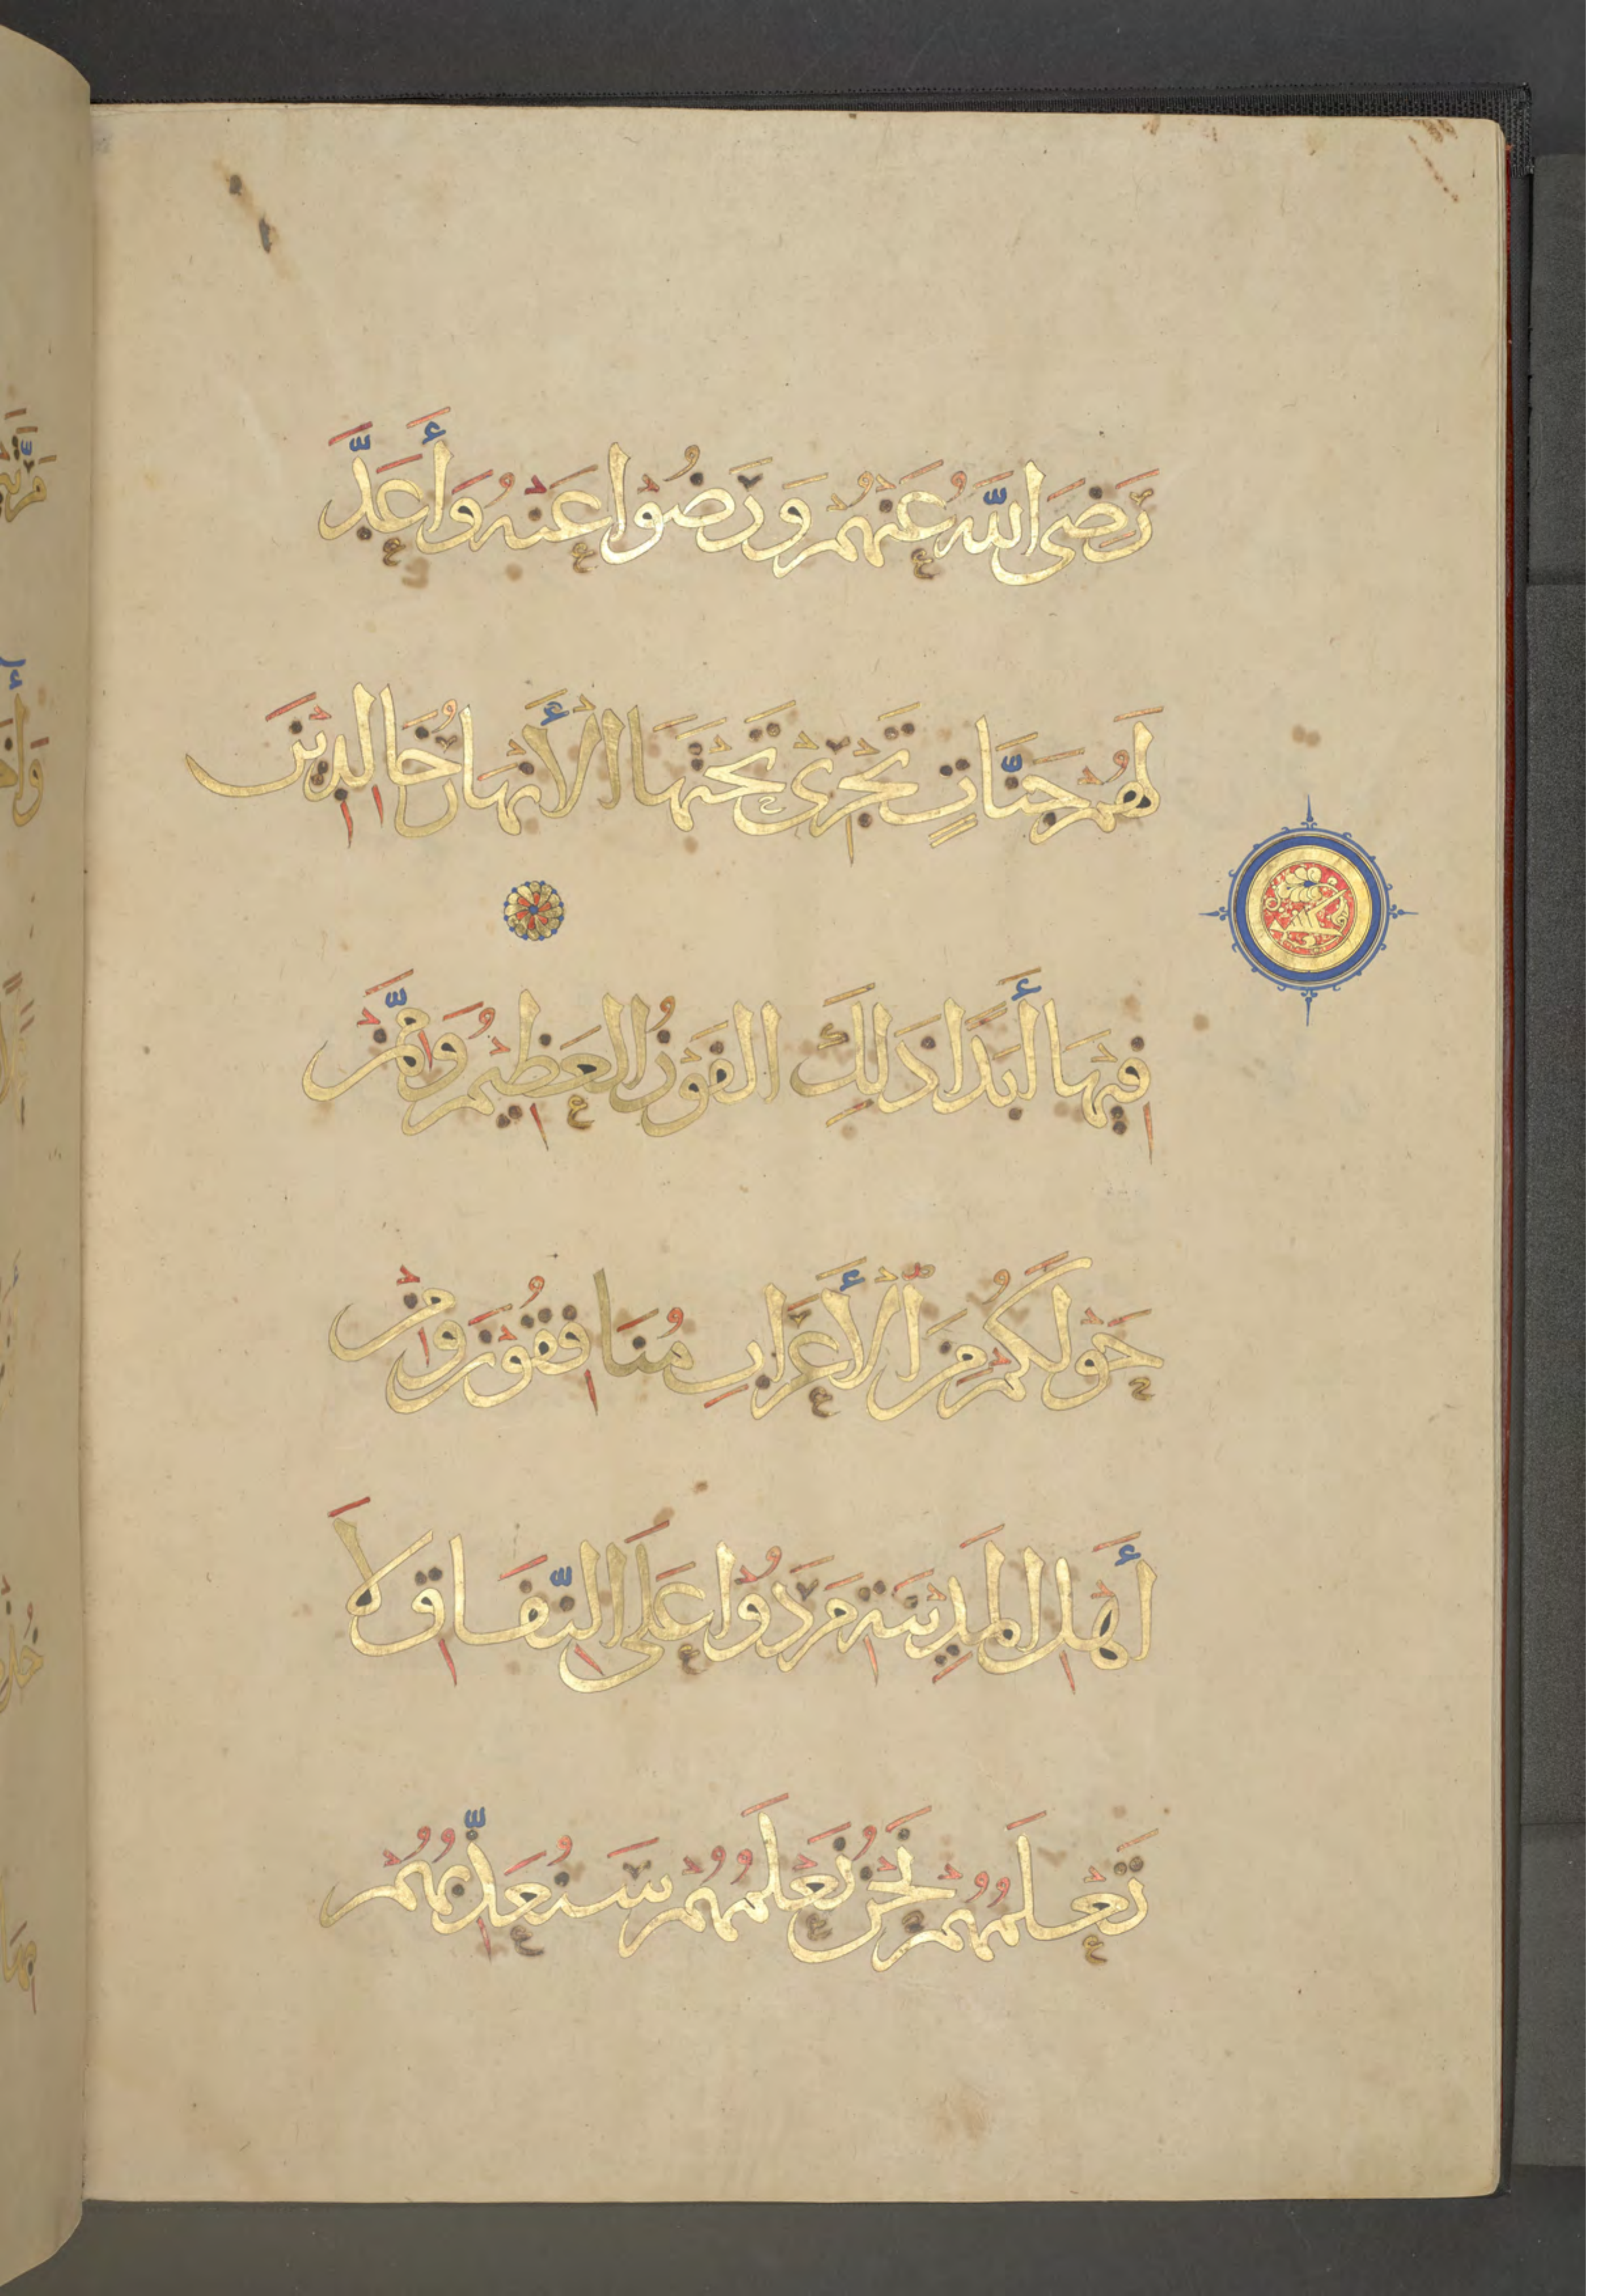 رَضِيَ اللَّهُ عَنْهُمْ وَرَضُوْا عَنْهُ وَأَعَدَّ
لَهُمْ جَنَّاتٍ تَجْرِىْ تَحْتَهَا الْأَنْهَارُ خَالِدِيْنَ
فِيْهَا أَبَدًا ذَلِكَ الفَوْزُ العَظِيْمُ وَمِمَّنْ
حَوْلَكُمْ مِنَ الْأَعْرَابِ مُنَافِقُوْنَ وَمِنْ
أَهْلِ المَدِيْنَةِ مَرَدُوْا عَلَى النِّفَاقِ لَا
تَعْلَمُهُمْ نَحْنُ نَعْلَمُهُمْ سَنُعَذِّبُهُمْ